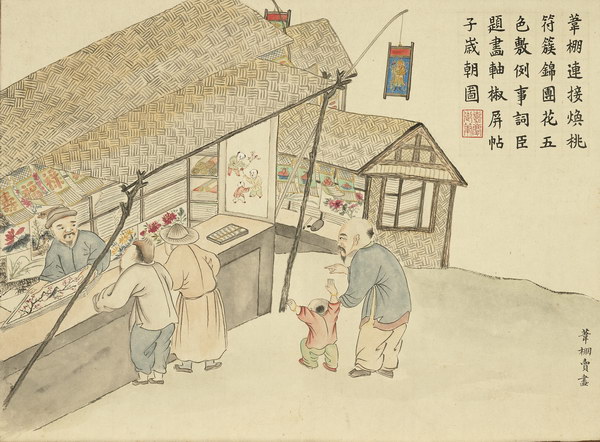 葦棚連接煥桃
符簇錦團花五
色敷例事詞臣
題畫軸椒屏帖
子嵗朝圖
葦棚賣畫